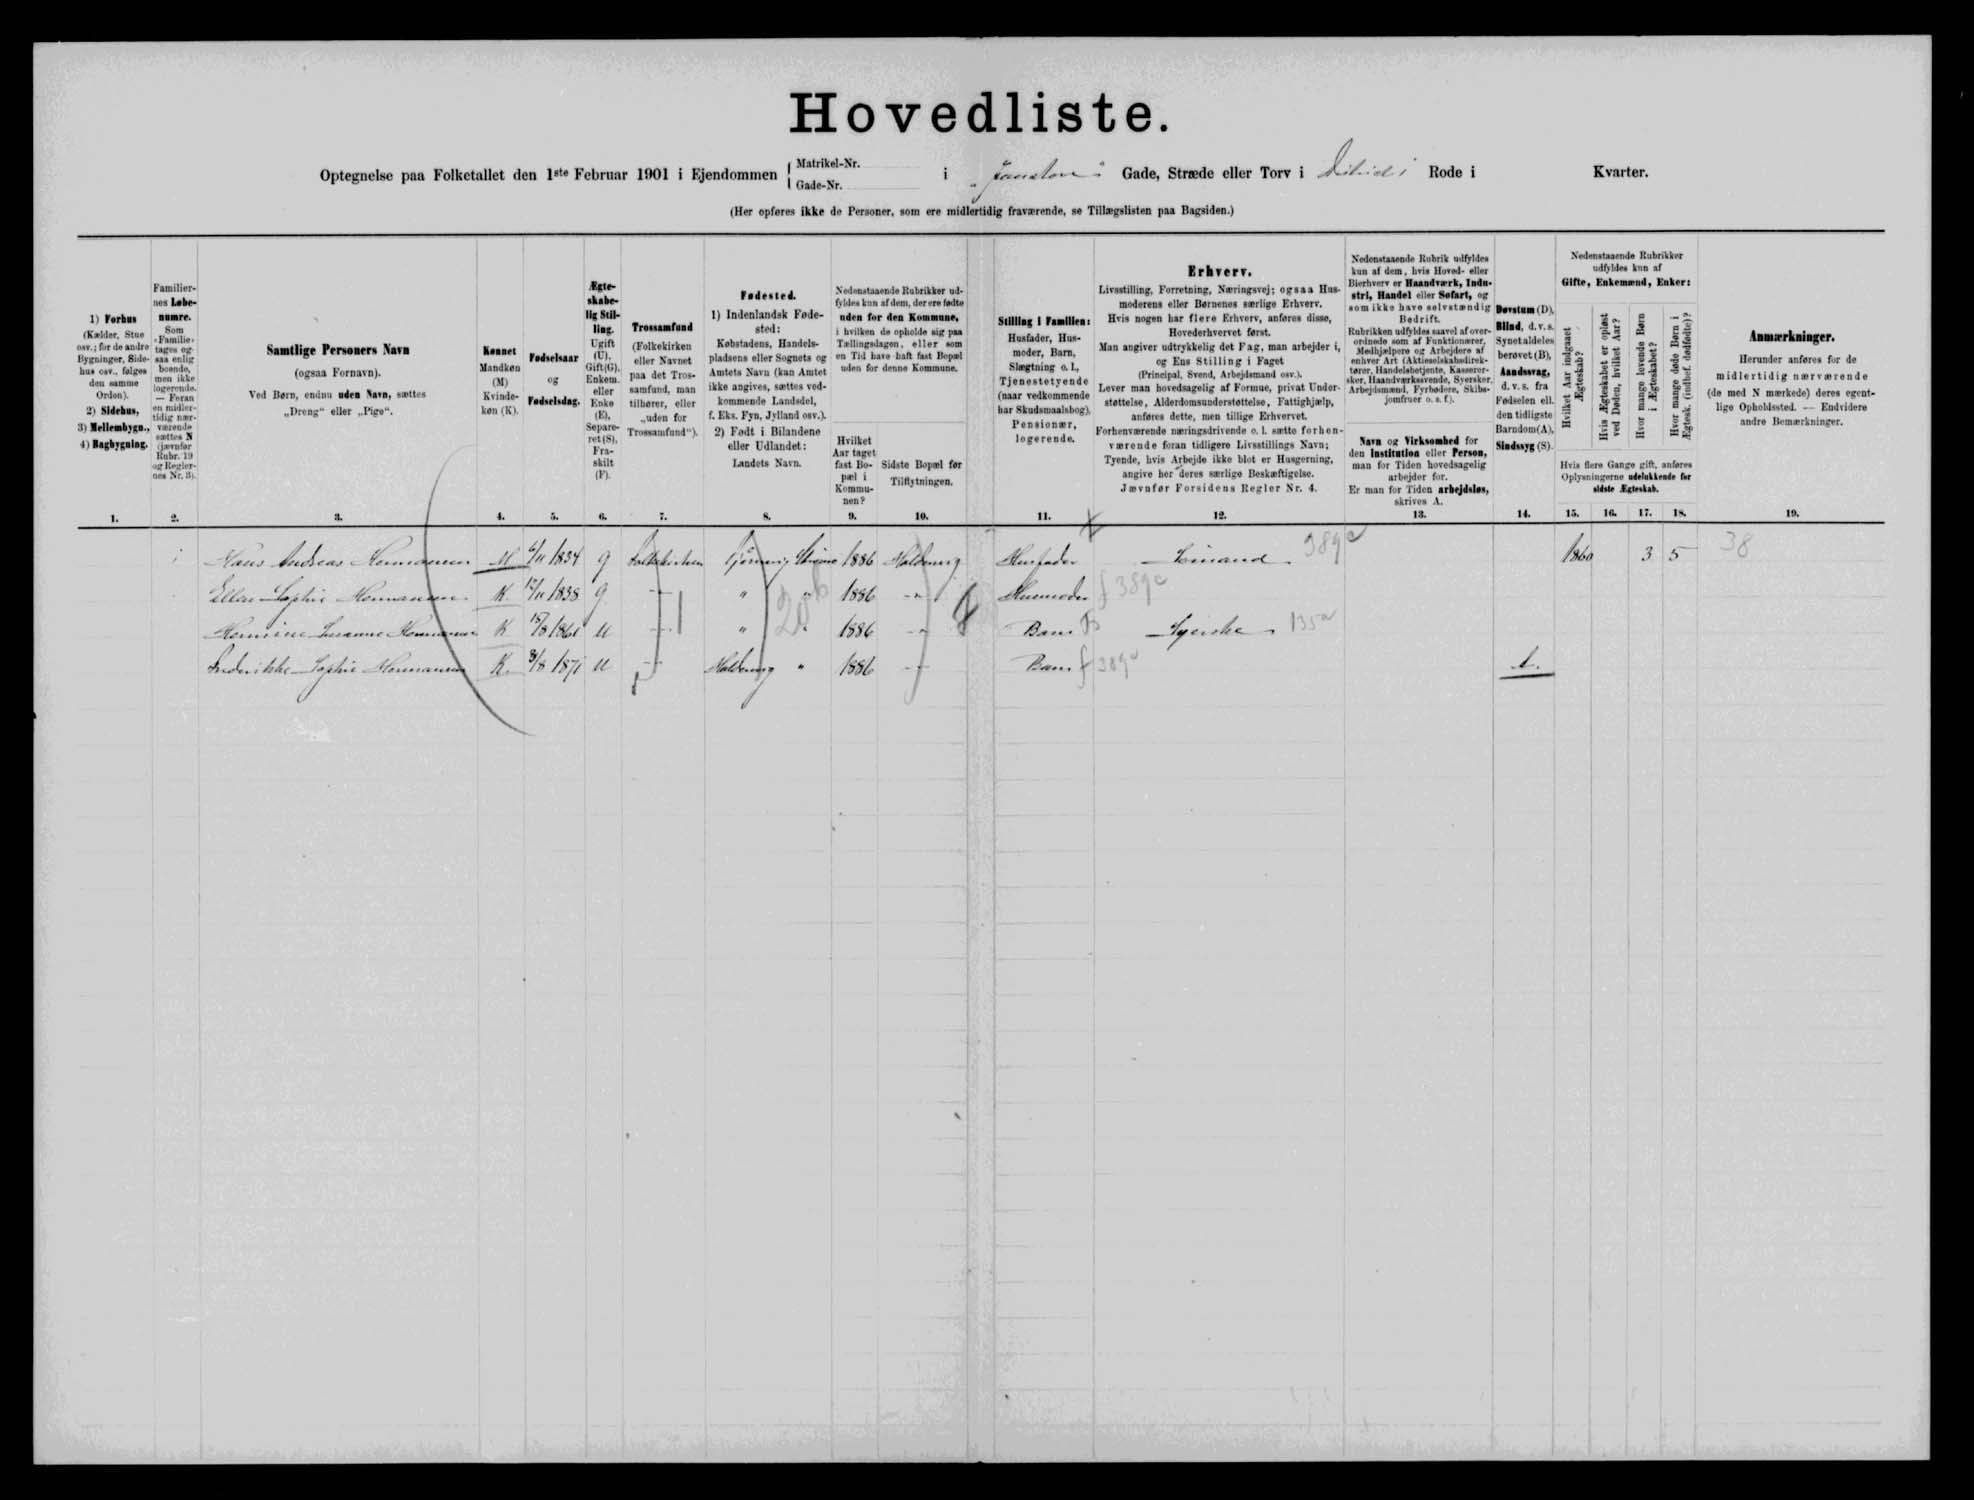 Hovedliste.
Optegnelse paa Folketallet den 1ste Februar 1901 i Ejendommen { Matrikel-Nr. Gade-Nr. i Gade, Stræde eller Torv i Rode i Kvarter.
(Her opføres ikke de Personer, som ere midlertidig fraværende, se Tillægslisten paa Bagsiden.)
1) Forhus (Kælder, Stue osv.; for de andre Bygninger, Sidehus osv., følges den samme Orden). 2) Sidehus, 3) Mellembygn., 4) Bagbygning.
Familiernes Løbenumre. Som »Familie« tages ogsaa enlig boende, men ikke logerende. — Foran en midlertidig nærværende sættes N (jævnfør Rubr. 19 og Reglernes Nr. 3).
Samtlige Personers Navn (ogsaa Fornavn). Ved Børn, endnu uden Navn, sættes „Dreng“ eller „Pige“.
Kønnet Mandkøn (M) Kvindekøn (K).
Fødselsaar og Fødselsdag.
Ægteskabelig Stilling. Ugift (U), Gift (G), Enkem. eller Enke (E), Separeret (S), Fraskilt (F).
Trossamfund (Folkekirken eller Navnet paa det Trossamfund, man tilhører, eller „uden for Trossamfund“).
Fødested. 1) Indenlandsk Fødested: Købstadens, Handelspladsens eller Sognets og Amtets Navn (kan Amtet ikke angives, sættes vedkommende Landsdel, f. Eks. Fyn, Jylland osv.). 2) Født i Bilandene eller Udlandet: Landets Navn.
Nedenstaaende Rubrikker udfyldes kun af dem, der ere fødte uden for den Kommune, i hvilken de opholde sig paa Tællingsdagen, eller som en Tid have haft fast Bopæl uden for denne Kommune.
Hvilket Aar taget fast Bopæl i Kommunen?
Sidste Bopæl før Tilflytningen.
Stilling i Familien: Husfader, Husmoder, Barn, Slægtning o. l., Tjenestetyende (naar vedkommende har Skudsmaalsbog), Pensionær, logerende.
Erhverv. Livsstilling, Forretning, Næringsvej; ogsaa Husmoderens eller Børnenes særlige Erhverv. Hvis nogen har flere Erhverv, anføres disse, Hovederhvervet først. Man angiver udtrykkelig det Fag, man arbejder i, og Ens Stilling i Faget (Principal, Svend, Arbejdsmand osv.). Lever man hovedsagelig af Formue, privat Understøttelse, Alderdomsunderstøttelse, Fattighjælp, anføres dette, men tillige Erhvervet. Forhenværende næringsdrivende o. l. sætte forhenværende foran tidligere Livsstillings Navn; Tyende, hvis Arbejde ikke blot er Husgerning, angive her deres særlige Beskæftigelse. Jævnfør Forsidens Regler Nr. 4.
Nedenstaaende Rubrik udfyldes kun af dem, hvis Hoved- eller Bierhverv er Haandværk, Industri, Handel eller Søfart, og som ikke have selvstændig Bedrift. Rubrikken udfyldes saavel af overordnede som af Funktionærer, Medhjælpere og Arbejdere af enhver Art (Aktieselskabsdirektører, Handelsbetjente, Kasserersker, Haandværkssvende, Syersker, Arbejdsmænd, Fyrbødere, Skibsjomfruer o. s. f.).
Navn og Virksomhed for den Institution eller Person, man for Tiden hovedsagelig arbejder for. Er man for Tiden arbejdsløs, skrives A.
Døvstum (D), Blind, d. v. s. Synet aldeles berøvet (B), Aandssvag, d. v. s. fra Fødselen ell. den tidligste Barndom (A), Sindssyg (S).
Nedenstaaende Rubrikker udfyldes kun af Gifte, Enkemænd, Enker:
Hvilket Aar indgaaet Ægteskab?
Hvis Ægteskabet er opløst ved Døden, hvilket Aar?
Hvor mange levende Børn i Ægteskabet?
Hvor mange døde Børn i Ægtesk. (indbef. dødfødte)?
Hvis flere Gange gift, anføres Oplysningerne udelukkende for sidste Ægteskab.
Anmærkninger. Herunder anføres for de midlertidig nærværende (de med N mærkede) deres egentlige Opholdssted. — Endvidere andre Bemærkninger.
1. 2. 3. 4. 5. 6. 7. 8. 9. 10. 11. 12. 13. 14. 15. 16. 17. 18. 19.
1 Hans Andreas Hermansen M 6/11 1834 G Folkekirken 1886 Haldervig Husfader 389a 1860 3 5 38
Ellen Sophie Hermansen K 12/11 1838 G " " " 1886 " Husmoder f 389a
Hermine Susanne Hermansen K 15/8 1861 U " " " 1886 " Barn B Syerske 135a
Frederikke Sophie Hermansen K 31/8 1871 U " Haldervig " 1886 " Barn f 389a A.